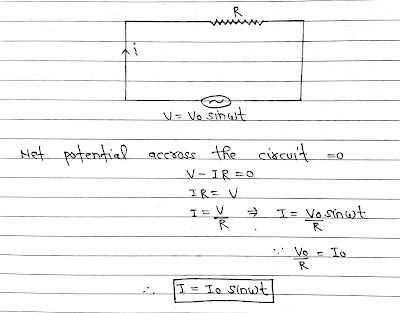 R
i
V = Vo sinωt
Net potential accross the circuit = 0
V - IR = 0
IR = V
I = V/R ⇒ I = Vo sinωt/R
∵ Vo/R = Io
∴ I = Io sinωt